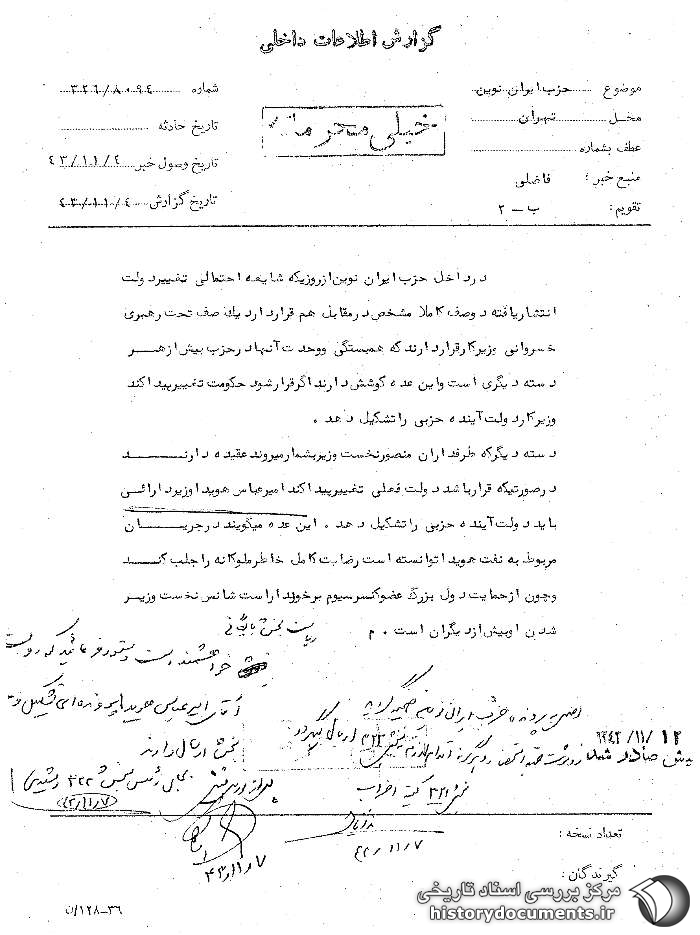 گزارش اطلاعات داخلی
موضوع حزب ایران نوین
محل تهران
عطف بشماره
منبع خبر : فاضلی
تقویم : ب - ۲
خیلی محرمانه
شماره ۳۲۶/۸۰۹۴
تاریخ حادثه
تاریخ وصول خبر ۴۳/۱۱/۴
تاریخ گزارش ۴۳/۱۱/۴
در داخل حزب ایران نوین از روزیکه شایعه احتمالی تغییر دولت
انتشار یافته دو صف کاملا مشخص در مقابل هم قرار دارد یک صف تحت رهبری
خسروانی وزیر کار قرار دارند که همبستگی و وحدت آنها در حزب بیش از هر
دسته دیگری است و این عده کوشش دارند اگر قرار شود حکومت تغییر پیدا کند
وزیر کار دولت آینده حزبی را تشکیل دهد .
دسته دیگر که طرفداران منصور نخست وزیر بشمار میروند عقیده دارند
در صورتیکه قرار باشد دولت فعلی تغییر پیدا کند امیر عباس هویدا وزیر دارائی
باید دولت آینده حزبی را تشکیل دهد . این عده میگویند در جریان
مربوط به نفت هویدا توانسته است رضایت کامل خاطر ملوکانه را جلب کند
و چون از حمایت دول بزرگ عضو کنسرسیوم برخوردار است شانس نخست وزیر
شدن او بیش از دیگران است . م
ریاست بخش بایگانی
خواهشمند است دستور فرمائید که
آقای امیر عباس هویدا پرونده ای تشکیل و
بخش ارسال دارند
رئیس بخش ۳۲۲
۴۳/۱۱/۷
اصل به پرونده حزب ایران نوین ضمیمه
ارسال گردد
۱۳۴۳/۱۱/۱۲
صادر شد
بخش ۳۲۱ کمیته احزاب
۴۳/۱۱/۷
۴۳/۱۱/۷
تعداد نسخه :
گیرندگان :
۳۶-۱۲۸/ن
مرکز بررسی اسناد تاریخی
historydocuments.ir